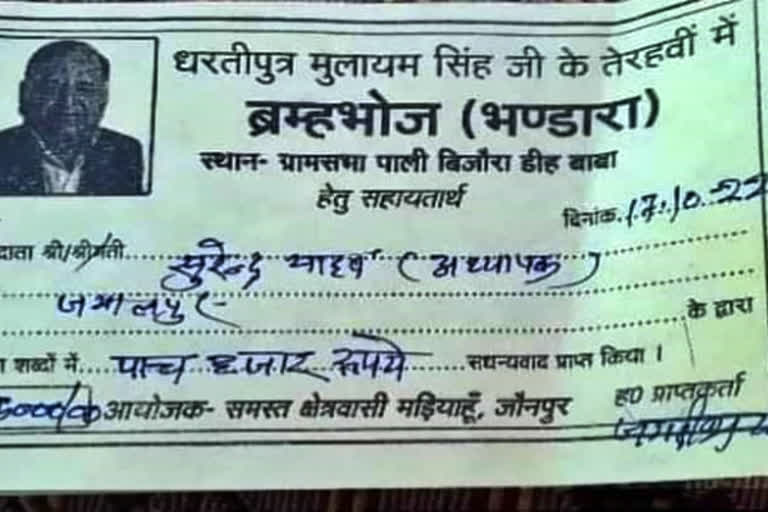 धरतीपुत्र मुलायम सिंह जी के तेरहवीं में
ब्रम्हभोज (भण्डारा)
स्थान- ग्रामसभा पाली बिजौरा डीह बाबा
हेतु सहायतार्थ
दिनांक. 17.10.22
दाता श्री/श्रीमती सुरेन्द्र यादव (अध्यापक)
जमालपुर के द्वारा
शब्दों में पाच हजार रूपये सधन्यवाद प्राप्त किया।
5000/00 आयोजक- समस्त क्षेत्रवासी मड़ियाहूँ, जौनपुर
ह० प्राप्तकर्ता